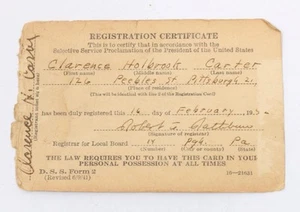 REGISTRATION CERTIFICATE
This is to certify that in accordance with the
Selective Service Proclamation of the President of the United States
Clarence Holbrook Carter
(First name) (Middle name) (Last name)
126 Peebles St Pittsburgh 21,
(Place of residence)
(This will be identical with line 2 of the Registration Card)
has been duly registered this 16 day of February, 19
Robert
(Signature of registrar)
Registrar for Local Board 14 Pgh. Pa
(Number) (City or county) (State)
THE LAW REQUIRES YOU TO HAVE THIS CARD IN YOUR
PERSONAL POSSESSION AT ALL TIMES
D. S. S. Form 2
(Revised 6/9/41)
16—21631
Clarence H. Carter